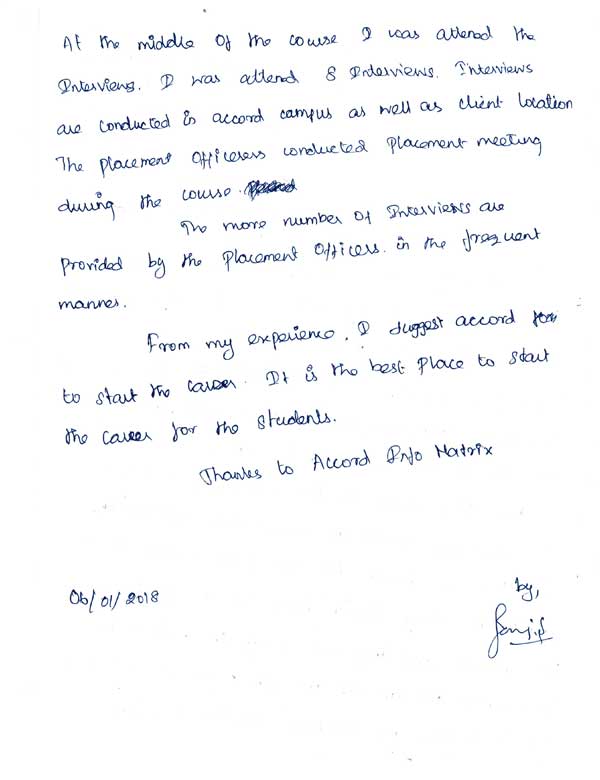 At the middle of the course I was attend the
Interviews. I was attend 8 Interviews. Interviews
are conducted in accord campus as well as client location
The placement officesess conducted placement meeting
during the course.
The more number of Interviews are
provided by the placement officess. in the frequent
mannes.
From my experience, I suggest accord for
to start the career. It is the best place to start
the career for the students.
Thanks to Accord Info Matrix
06/01/2018
by,